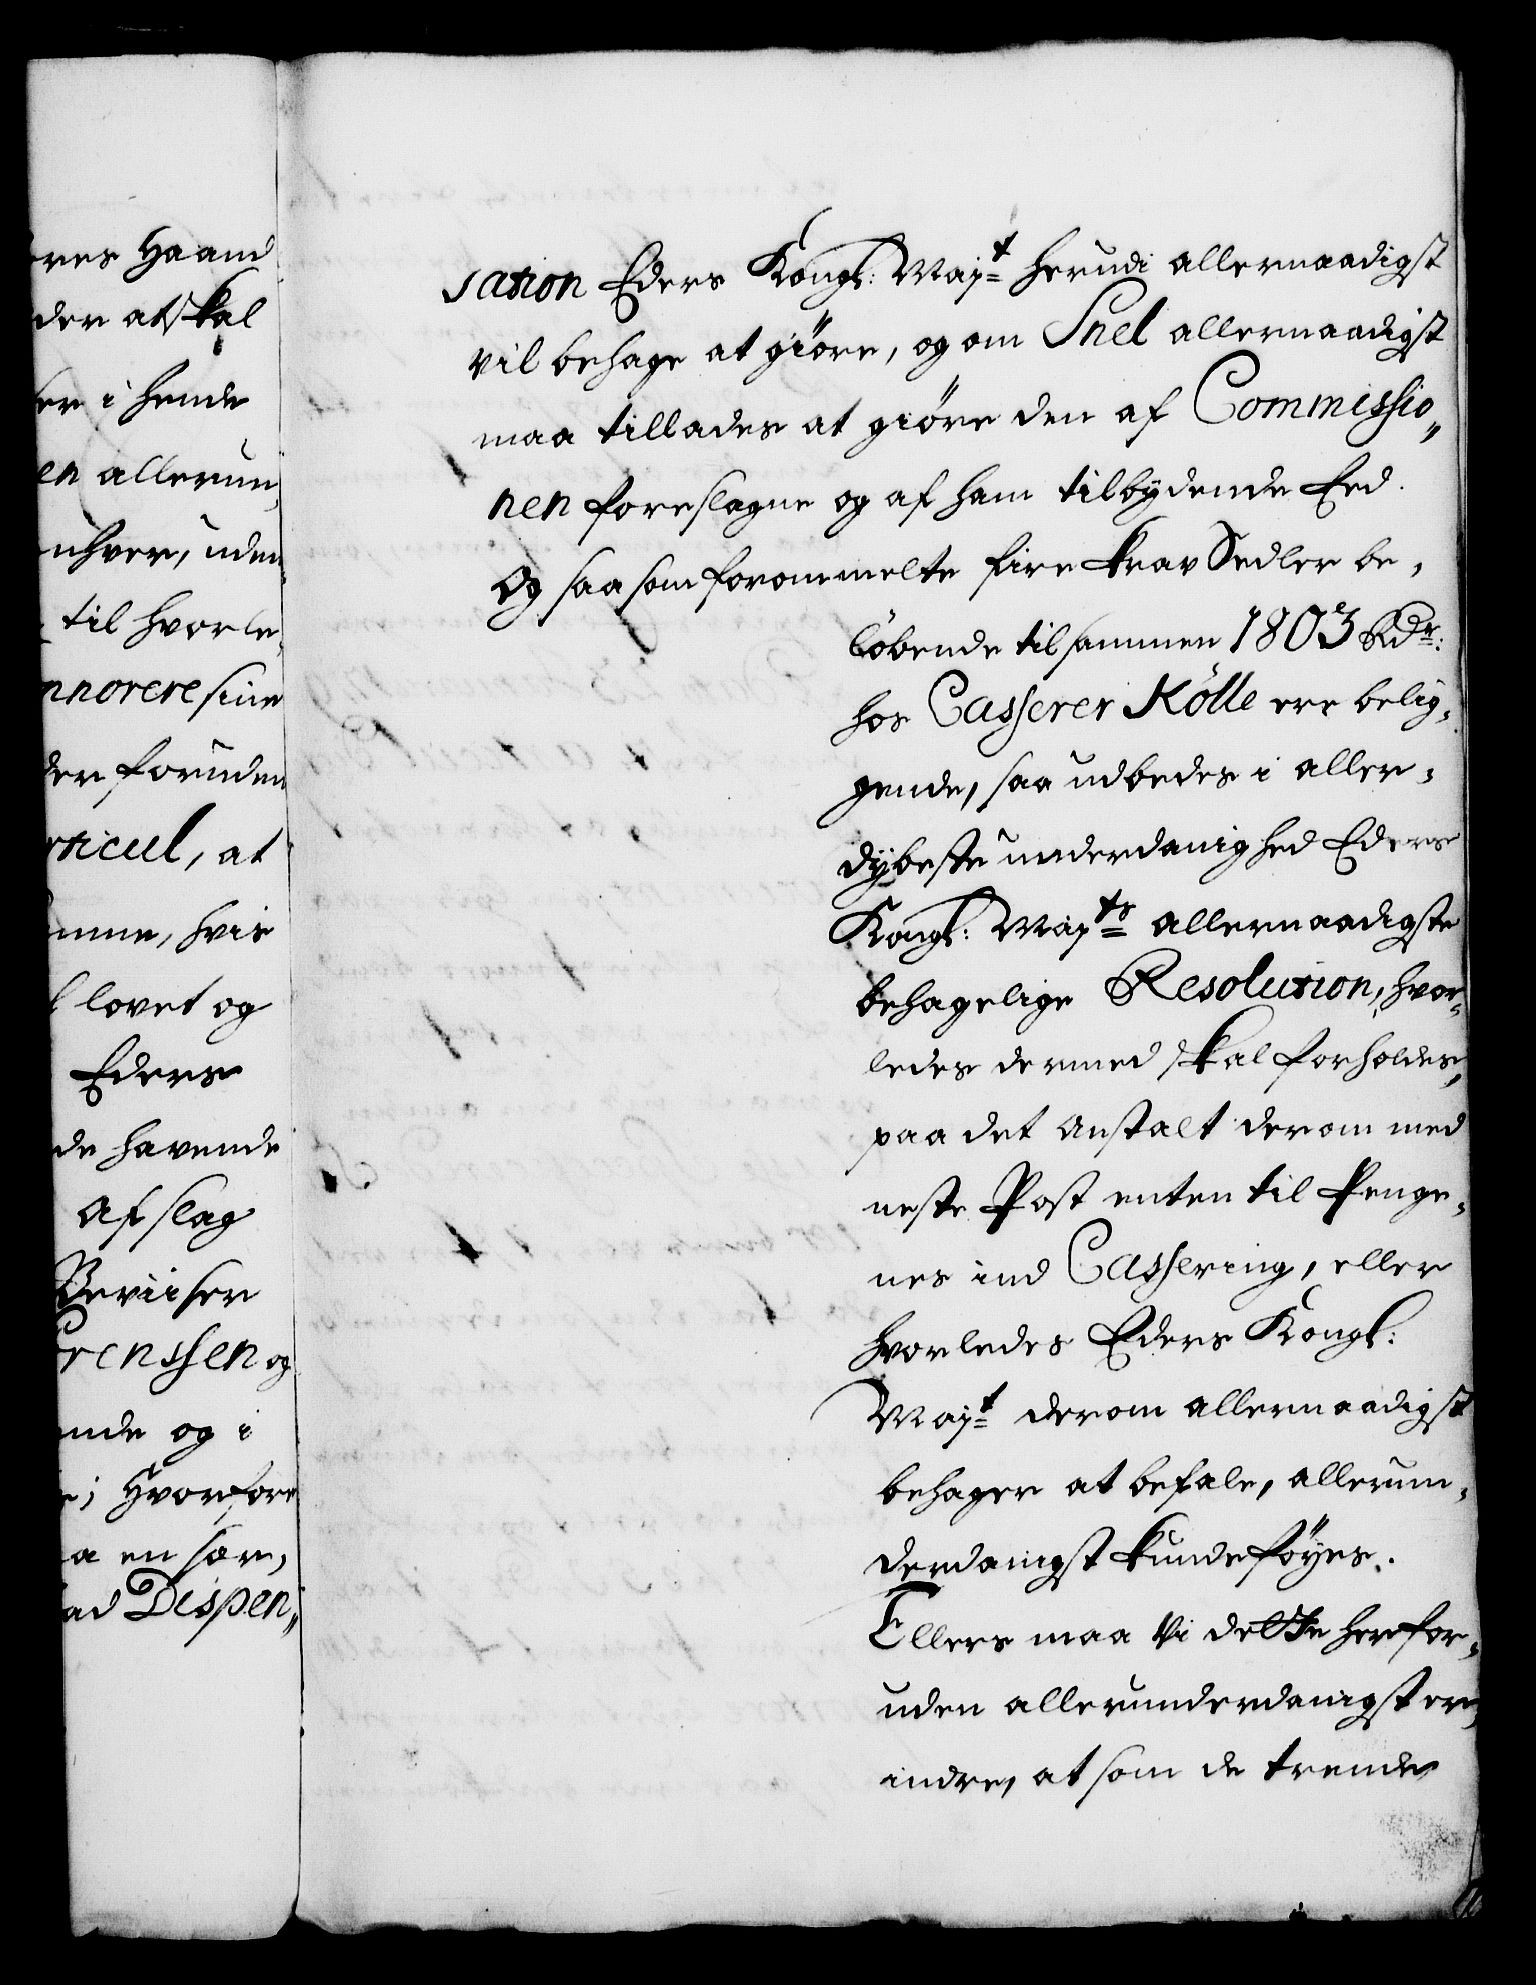 eres Haand
der at skal
ser i hende
en allerun,
enhver, uden,
til hvorle,
nnorere sine
der foruden
rticul, at
omme, hvis
l lovet og
Eders
de havende
Afslag
Beviiser
orenssen og
ende og i
e; Hvorfore
a en sær,
ad Dispen,,
sation Eders Kongl: Maj:t herudi allernaadigst
vil behage at giöre, og om Snel allernaadigst
maa tillades at giöre den af Commissio,,
nen foreslagne og af ham tilbydende Eed.
Og saasom forommelte fire krav Sedler be,
löbende tilsammen 1803 Rdr:
hos Casserer Kölle ere belig,
gende, saa udbedes i aller,
dybeste underdanighed Eders
Kongl: Majts allernaadigste
behagelige Resolution, hvor,
ledes dermed skal forholdes,
paa det Anstalt derom med
neste Post enten til Penge,
nes ind Cassering, eller
hvorledes Eders Kongl:
Majt derom allernaadigst
behager at befale, allerun,
derdanigst kunde föyes.
Ellers maa Vi dette herfor,
uden allerunderdanigst er,
indre, at som de trende